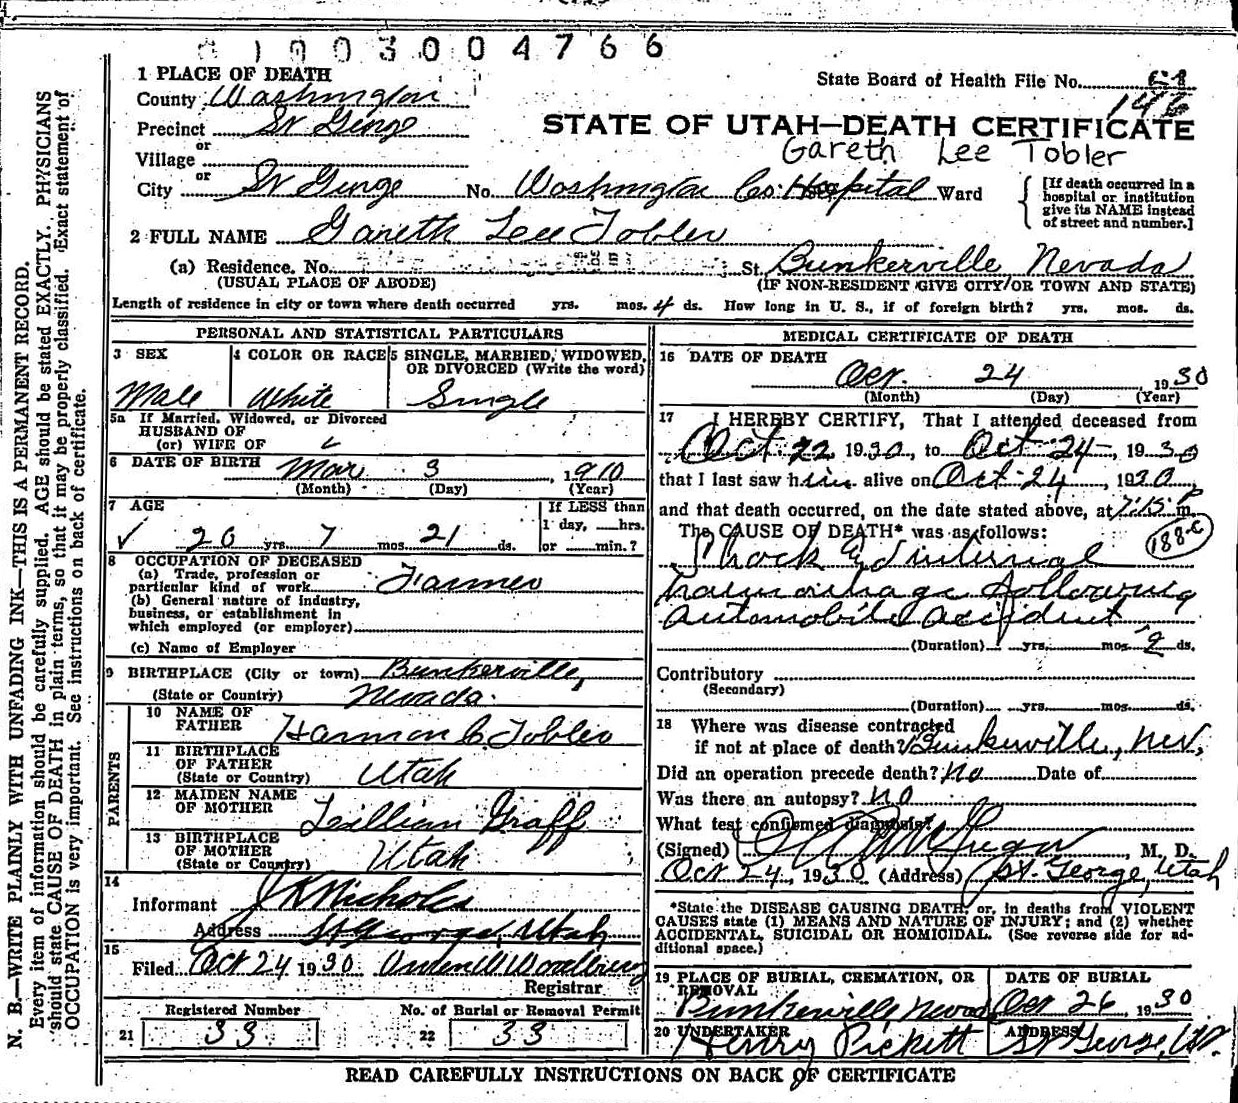 1003004766
1 PLACE OF DEATH
State Board of Health File No.
County Washington
146
Precinct St George
STATE OF UTAH—DEATH CERTIFICATE
or
Gareth Lee Tobler
Village
or
City St George No. Washington Co. Hospital Ward
[If death occurred in a
hospital or institution
give its NAME instead
of street and number.]
2 FULL NAME Gareth Lee Tobler
(a) Residence. No. St. Bunkerville, Nevada
(USUAL PLACE OF ABODE) (IF NON-RESIDENT GIVE CITY OR TOWN AND STATE)
Length of residence in city or town where death occurred yrs. mos. 4 ds. How long in U. S., if of foreign birth? yrs. mos. ds.
PERSONAL AND STATISTICAL PARTICULARS
3 SEX 4 COLOR OR RACE 5 SINGLE, MARRIED, WIDOWED,
OR DIVORCED (Write the word)
Male White Single
5a If Married, Widowed, or Divorced
HUSBAND OF
(or) WIFE OF
6 DATE OF BIRTH Mar 3, 1910
(Month) (Day) (Year)
7 AGE If LESS than
1 day, hrs.
20 yrs. 7 mos. 21 ds. or min.?
8 OCCUPATION OF DECEASED
(a) Trade, profession or
particular kind of work Farmer
(b) General nature of industry,
business, or establishment in
which employed (or employer)
(c) Name of Employer
9 BIRTHPLACE (City or town) Bunkerville,
(State or Country) Nevada.
PARENTS
10 NAME OF
FATHER Harmon C. Tobler
11 BIRTHPLACE
OF FATHER
(State or Country) Utah
12 MAIDEN NAME
OF MOTHER Lillian Graff
13 BIRTHPLACE
OF MOTHER
(State or Country) Utah
14
Informant J K Nicholes
Address St George, Utah
15
Filed Oct 24 1930
Registrar
Registered Number No. of Burial or Removal Permit
21 33 22 33
MEDICAL CERTIFICATE OF DEATH
16 DATE OF DEATH
Oct. 24, 1930
(Month) (Day) (Year)
17 I HEREBY CERTIFY, That I attended deceased from
Oct 22, 1930, to Oct 24, 1930
that I last saw him alive on Oct 24, 1930,
and that death occurred, on the date stated above, at 7:15 P m.
The CAUSE OF DEATH* was as follows:
188-c
Shock & internal
haemorrhage following
automobile accident
(Duration) yrs. mos. 2 ds.
Contributory
(Secondary)
(Duration) yrs. mos. ds.
18 Where was disease contracted
if not at place of death? Bunkerville, Nev,
Did an operation precede death? No Date of
Was there an autopsy? No
What test confirmed diagnosis?
(Signed) McGregor, M. D.
Oct 24, 1930 (Address) St. George, Utah
*State the DISEASE CAUSING DEATH, or, in deaths from VIOLENT
CAUSES state (1) MEANS AND NATURE OF INJURY; and (2) whether
ACCIDENTAL, SUICIDAL OR HOMICIDAL. (See reverse side for ad-
ditional space.)
19 PLACE OF BURIAL, CREMATION, OR
REMOVAL
DATE OF BURIAL
Bunkerville Nevada Oct 26, 1930
20 UNDERTAKER ADDRESS
Henry Pickett St George, Ut.
READ CAREFULLY INSTRUCTIONS ON BACK OF CERTIFICATE
N. B.—WRITE PLAINLY WITH UNFADING INK—THIS IS A PERMANENT RECORD.
Every item of information should be carefully supplied. AGE should be stated EXACTLY. PHYSICIANS
should state CAUSE OF DEATH in plain terms, so that it may be properly classified. Exact statement of
OCCUPATION is very important. See instructions on back of certificate.